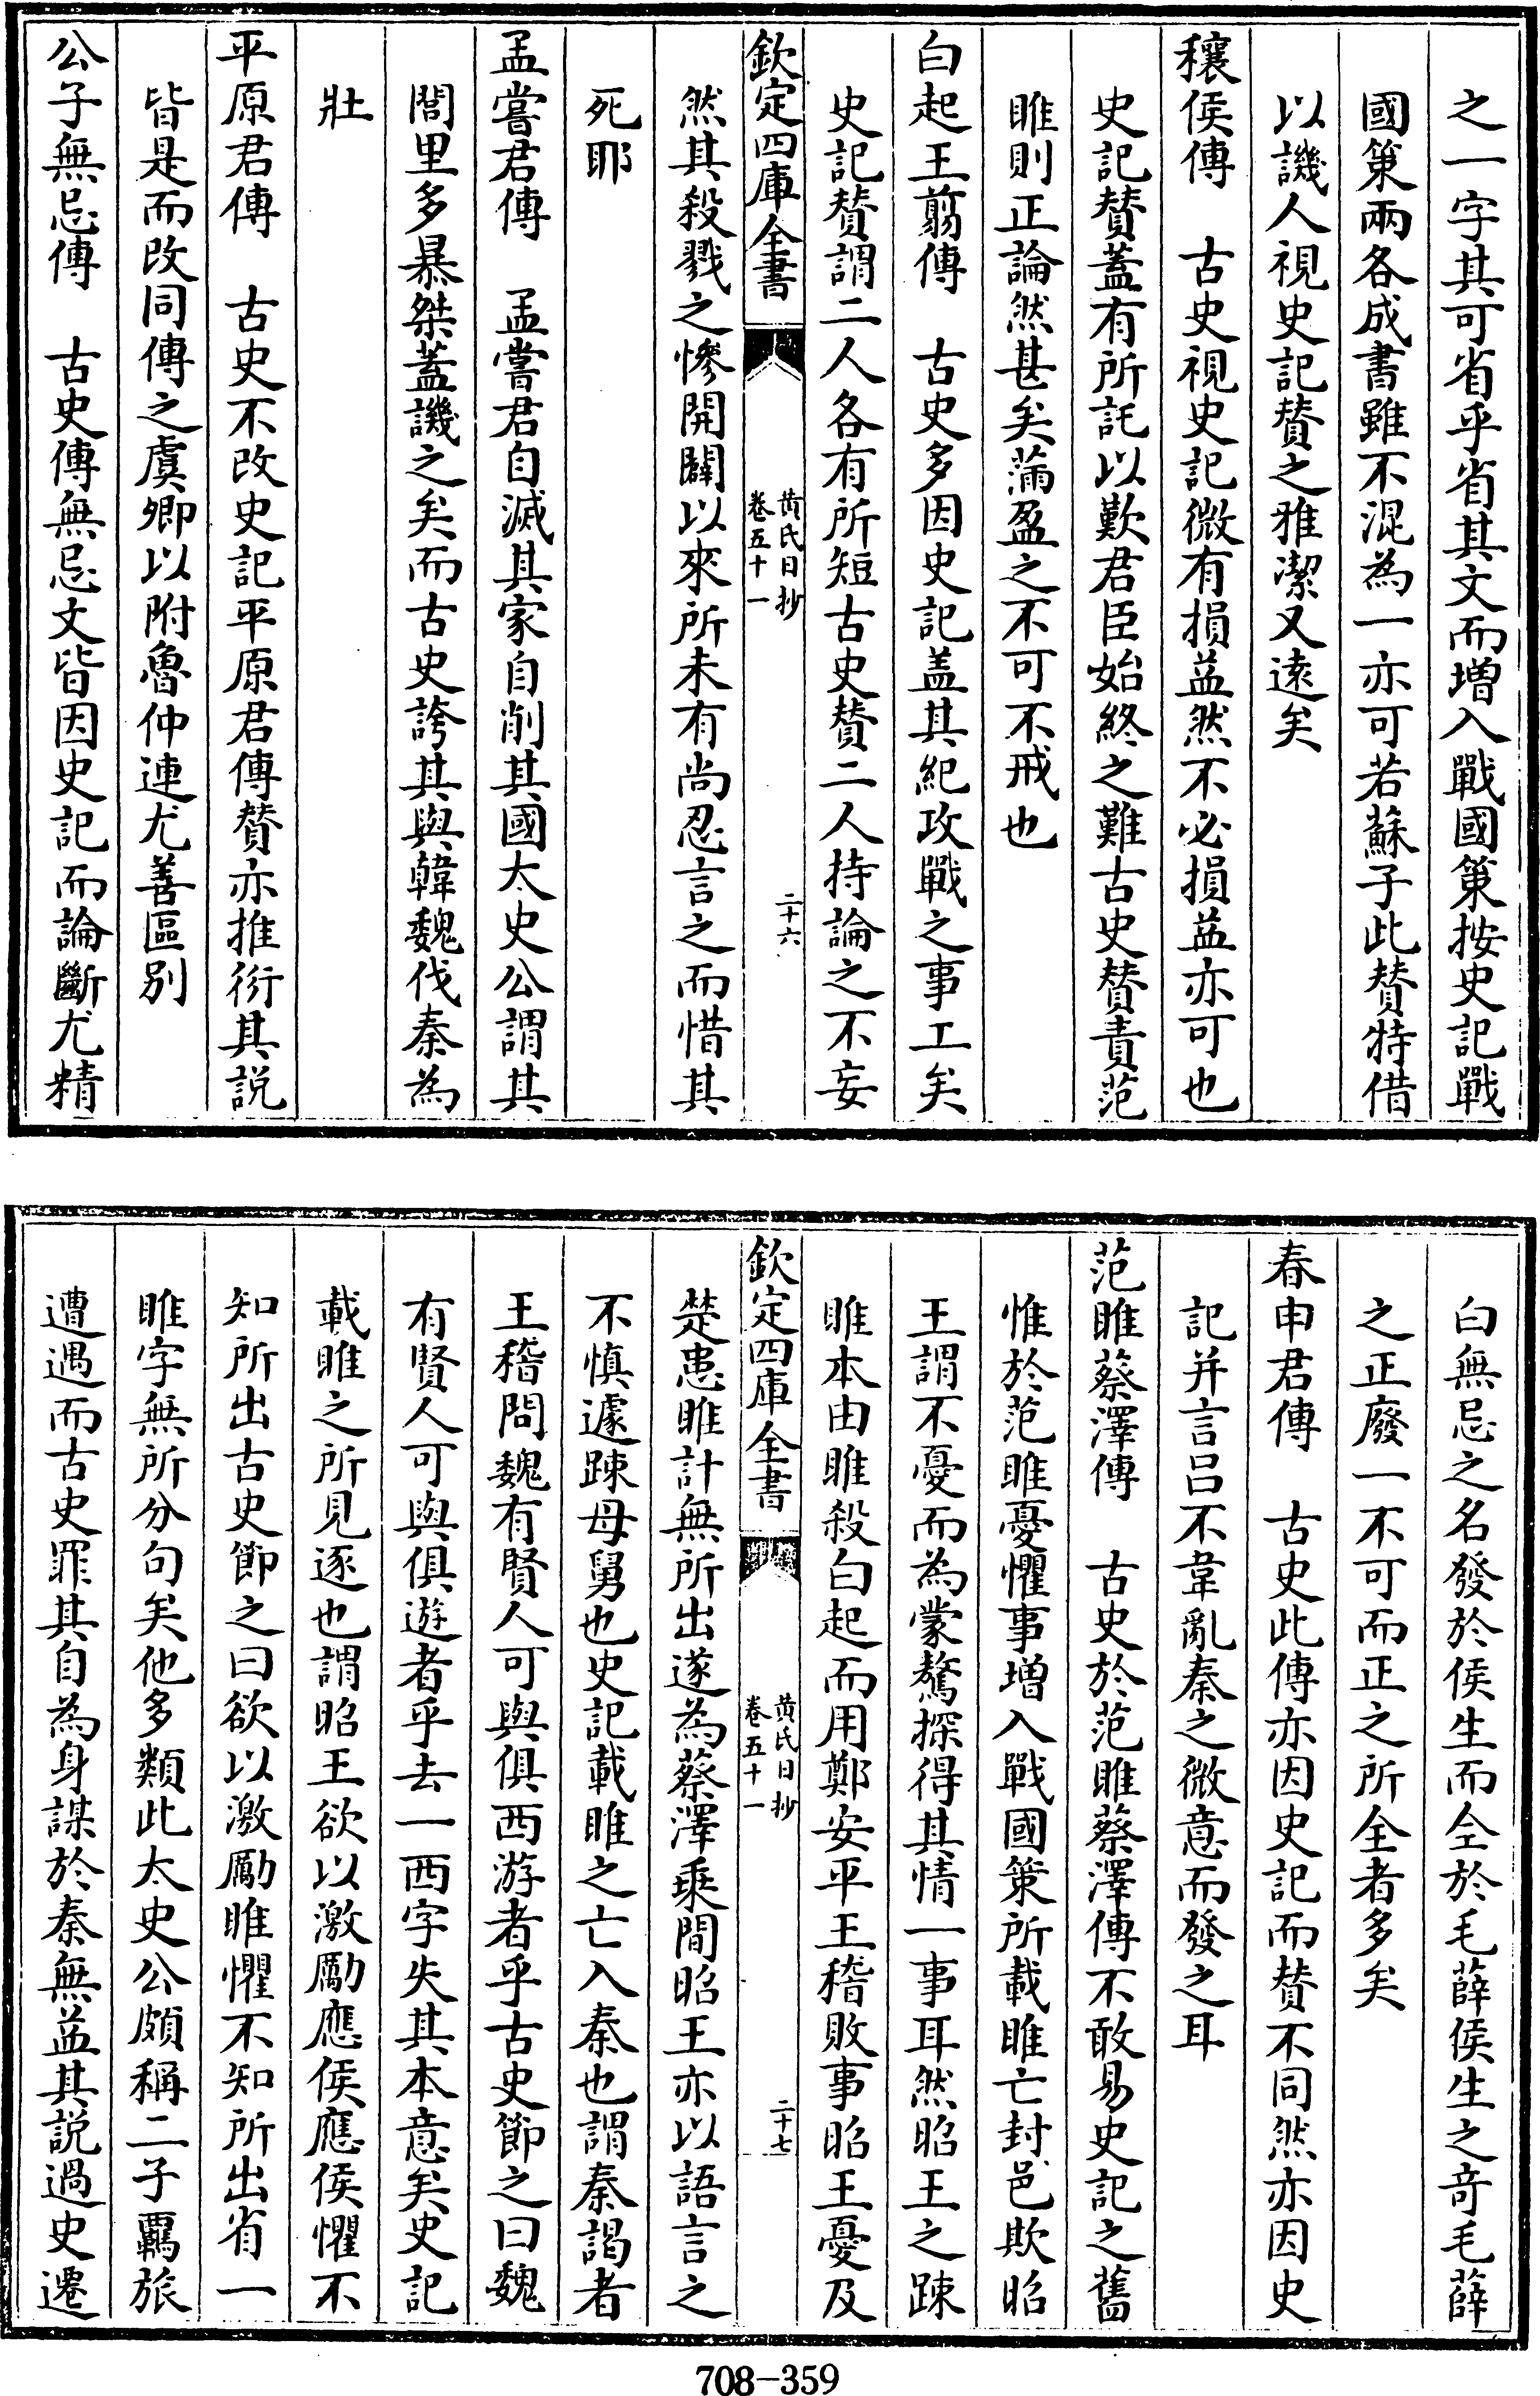 之一字其可省乎省其文而增入戰國策按史記戰
國策兩各成書雖不混為一亦可若蘇子此贊特借
以譏人視史記贊之雅潔又遠矣
穰侯傳　古史視史記微有損益然不必損益亦可也
史記贊蓋有所託以歎君臣始終之難古史贊責范
雎則正論然甚矣滿盈之不可不戒也
白起王翦傳　古史多因史記盖其紀攻戰之事工矣
史記贊謂二人各有所短古史贊二人持論之不妄
欽定四庫全書　黄氏日抄　卷五十一　二十六
然其殺戮之慘開闢以來所未有尚忍言之而惜其
死耶
孟嘗君傳　孟嘗君自滅其家自削其國太史公謂其
閭里多暴桀蓋譏之矣而古史誇其與韓魏伐秦為
壯
平原君傳　古史不改史記平原君傳贊亦推衍其説
皆是而改同傳之虞卿以附魯仲連尤善區别
公子無忌傳　古史傳無忌文皆因史記而論斷尤精
白無忌之名發於侯生而全於毛薛侯生之竒毛薛
之正廢一不可而正之所全者多矣
春申君傳　古史此傳亦因史記而贊不同然亦因史
記并言吕不韋亂秦之微意而發之耳
范雎蔡澤傳　古史於范雎蔡澤傳不敢易史記之舊
惟於范雎憂懼事增入戰國策所載雎亡封邑欺昭
王謂不憂而為蒙驁探得其情一事耳然昭王之踈
雎本由雎殺白起而用鄭安平王稽敗事昭王憂及
欽定四庫全書　黄氏日抄　卷五十一　二十七
楚恚雎計無所出遂為蔡澤乘間昭王亦以語言之
不慎遽踈母舅也史記載雎之亡入秦也謂秦謁者
王稽問魏有賢人可與俱西游者乎古史節之曰魏
有賢人可與俱遊者乎去一西字失其本意矣史記
載雎之所見逐也謂昭王欲以激勵應侯應侯懼不
知所出古史節之曰欲以激勵雎懼不知所出省一
雎字無所分句矣他多類此太史公頗稱二子羈旅
遭遇而古史罪其自為身謀於秦無益其説過史遷
708-359